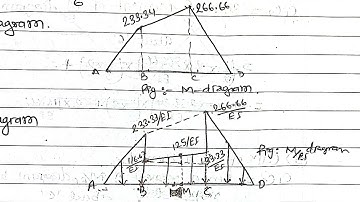 6
agram.
233.34
266.66
A
B
C
D
Fig :- M-diagram.
agram
233.33/EI
266.66/EI
125/EI
116.6/EI
133.33/EI
Fig: M/EI diagram
A
B
M
C
D